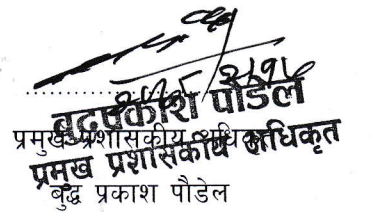 बुद्धप्रकाश पौडेल
प्रमुख प्रशासकीय अधिकृत
प्रमुख प्रशासकीय अधिकृत
बुद्ध प्रकाश पौडेल